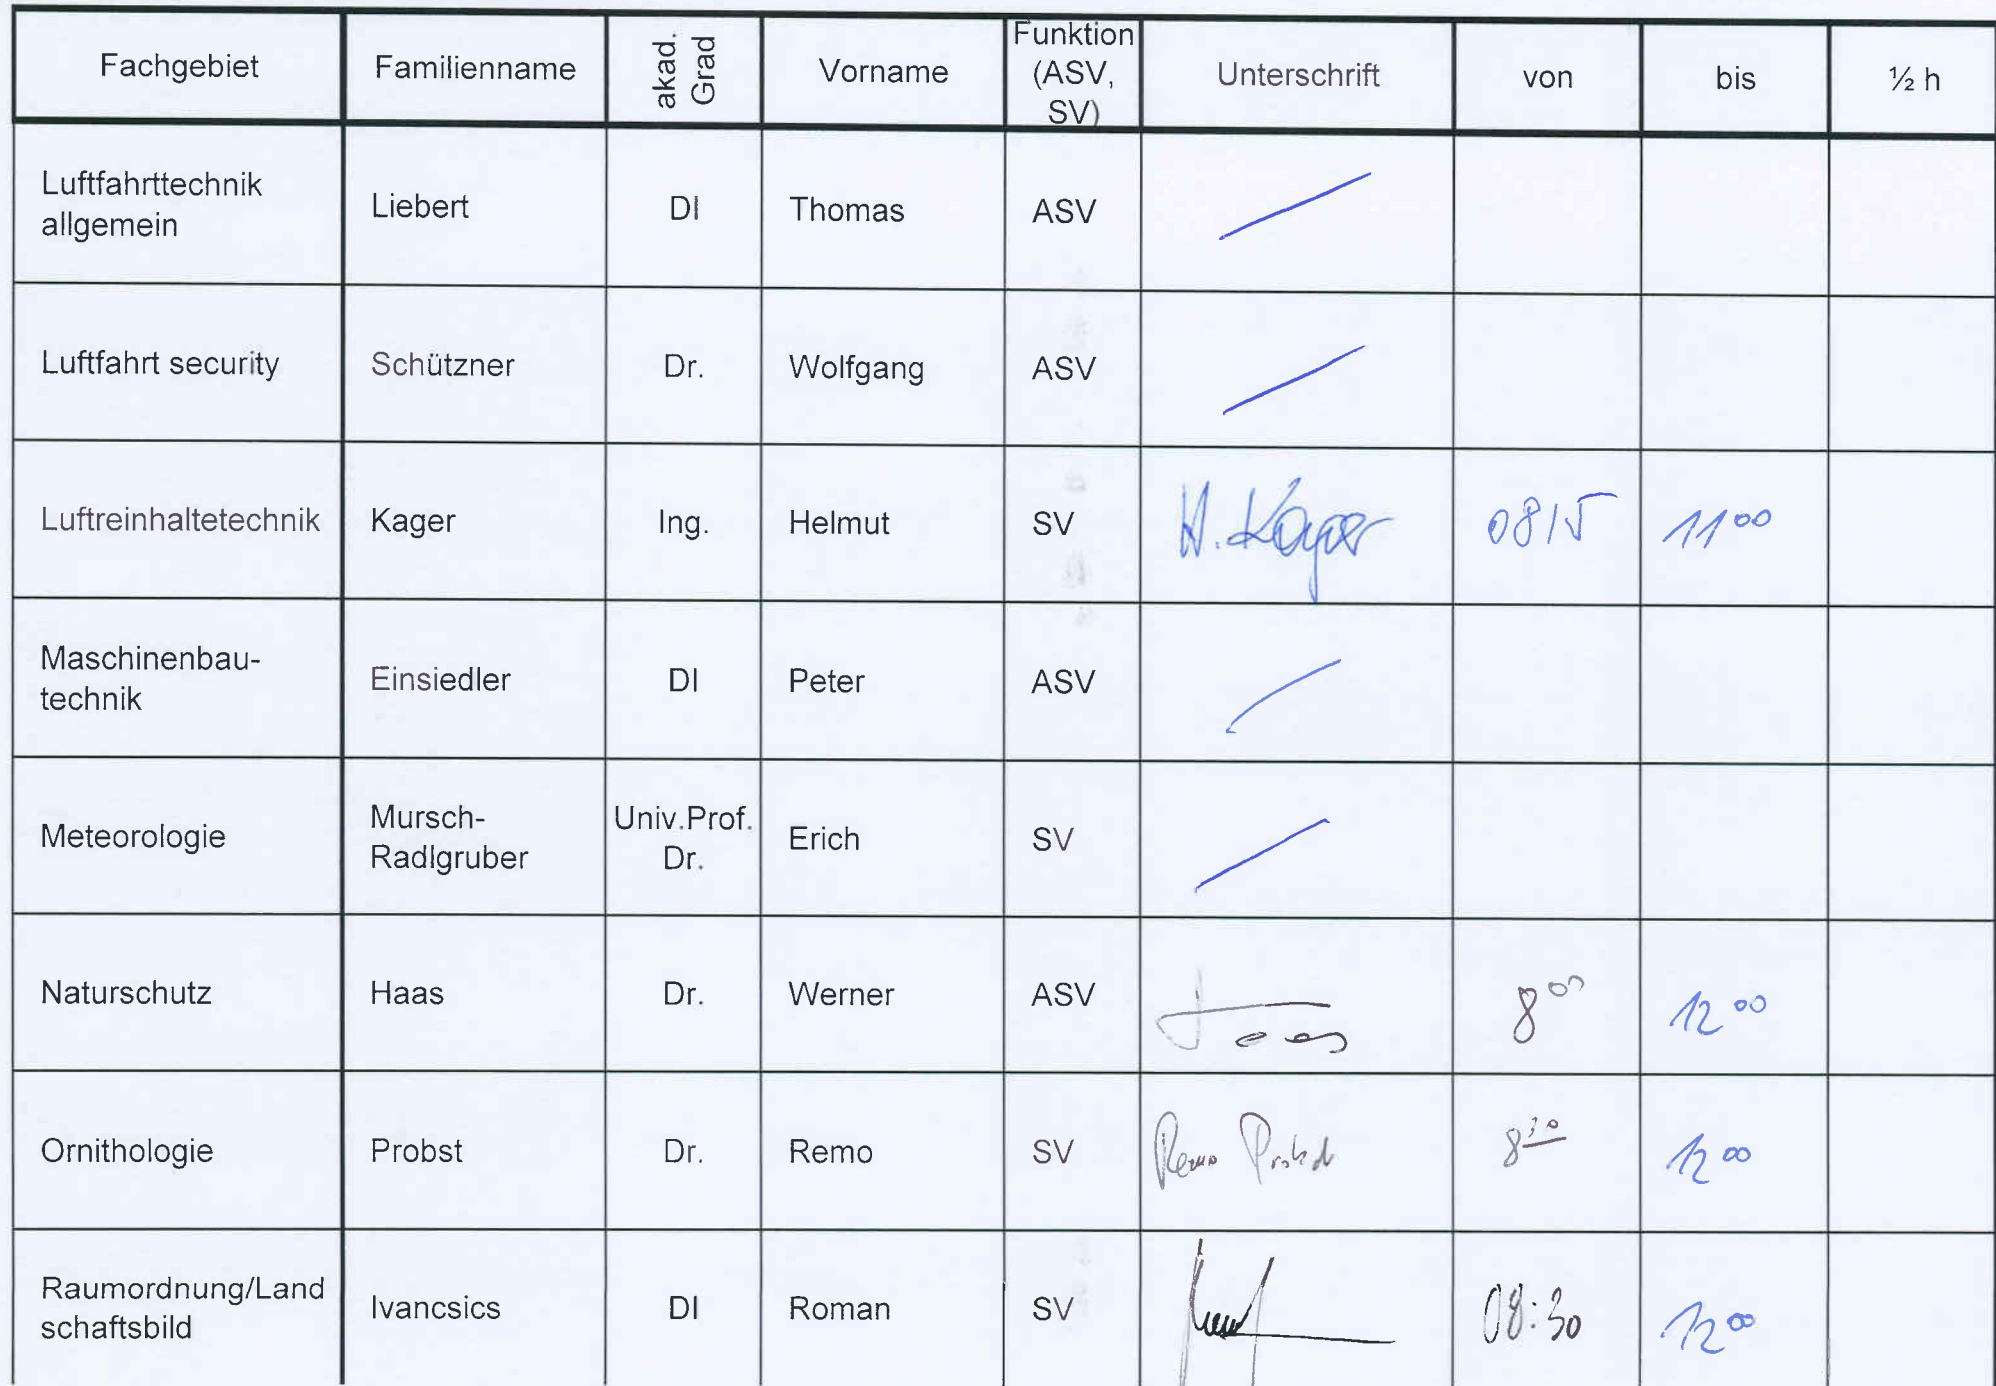 Fachgebiet Familienname akad. Grad Vorname Funktion (ASV, SV) Unterschrift von bis ½ h
Luftfahrttechnik
allgemein Liebert DI Thomas ASV
Luftfahrt security Schützner Dr. Wolfgang ASV
Luftreinhaltetechnik Kager Ing. Helmut SV H. Kager 0815 11 00
Maschinenbau-
technik Einsiedler DI Peter ASV
Meteorologie Mursch-
Radlgruber Univ.Prof.
Dr. Erich SV
Naturschutz Haas Dr. Werner ASV 8 00 12 00
Ornithologie Probst Dr. Remo SV Remo Probst 8 30 12 00
Raumordnung/Land
schaftsbild Ivancsics DI Roman SV 08:30 12 00